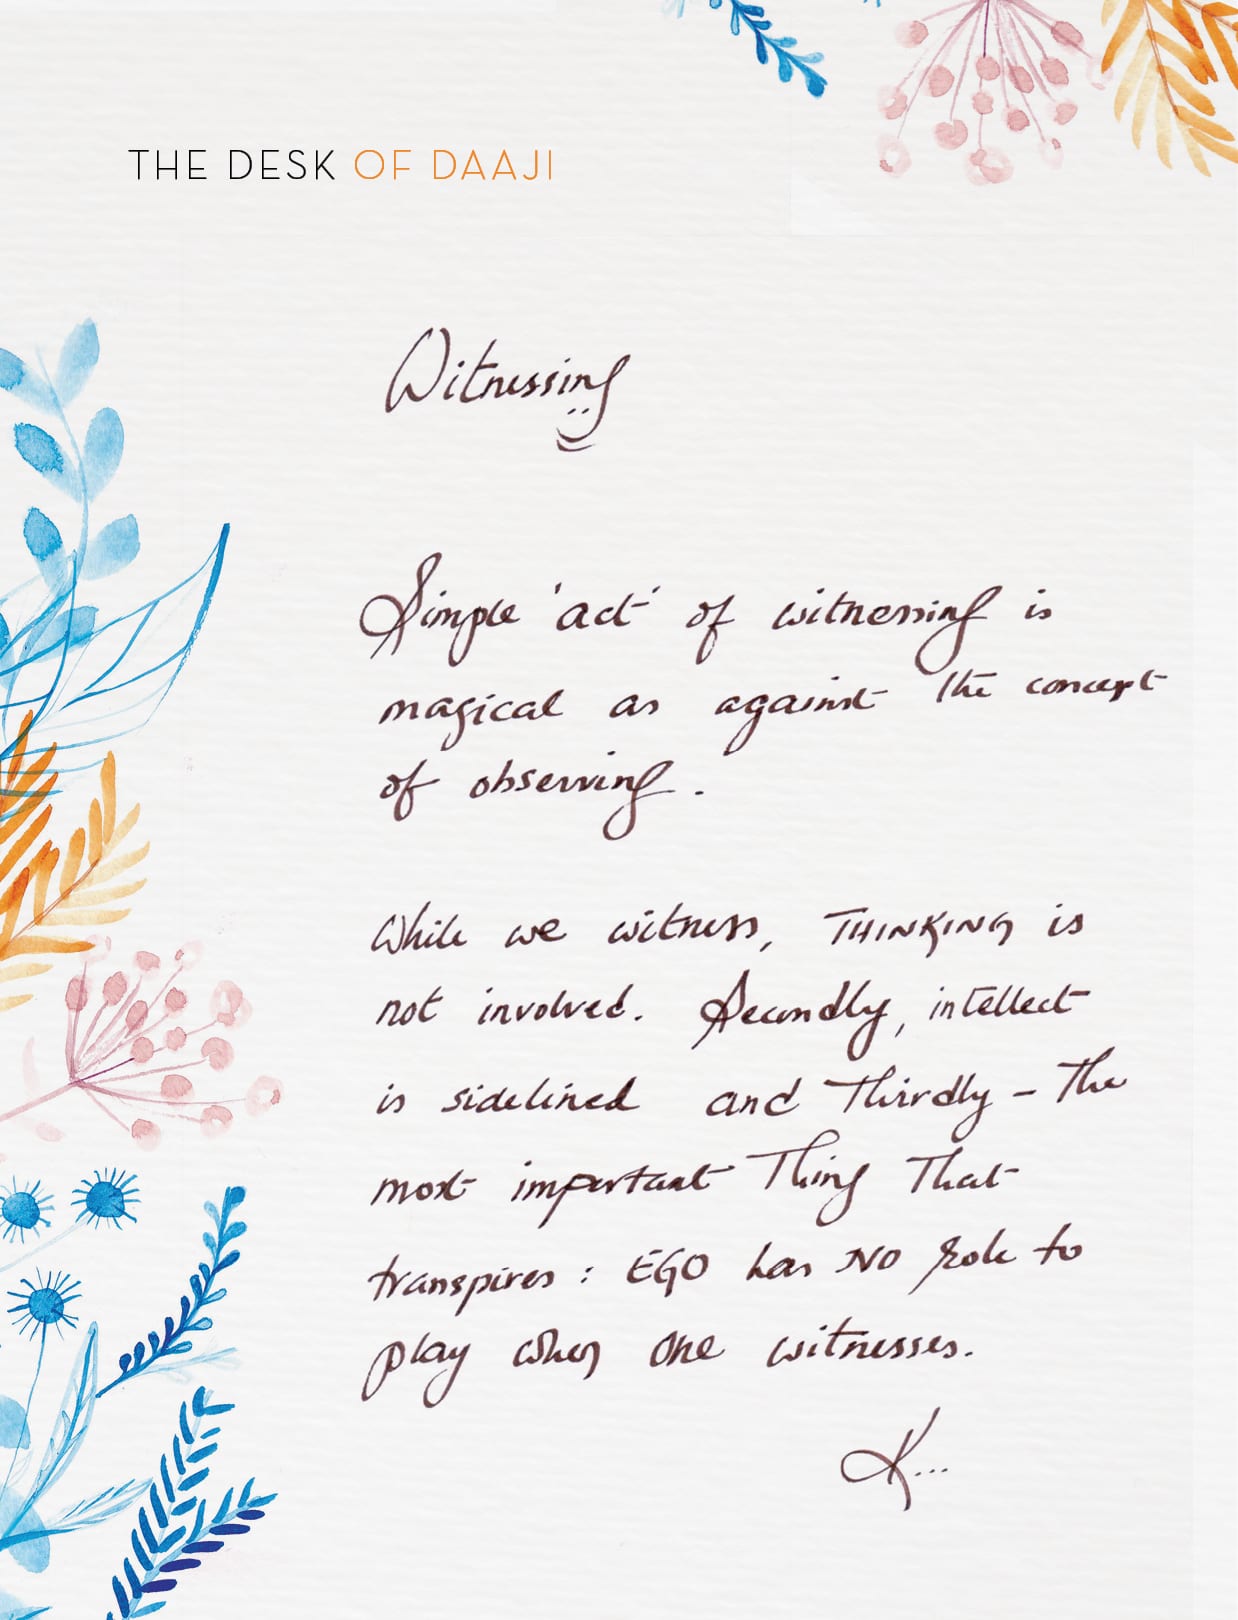 THE DESK OF DAAJI
Witnessing
Simple 'act' of witnessing is
magical as against the concept
of observing.
While we witness, THINKING is
not involved. Secondly, intellect
is sidelined and Thirdly – The
most important Thing That
transpires: EGO has NO Role to
play when one witnesses.
K...